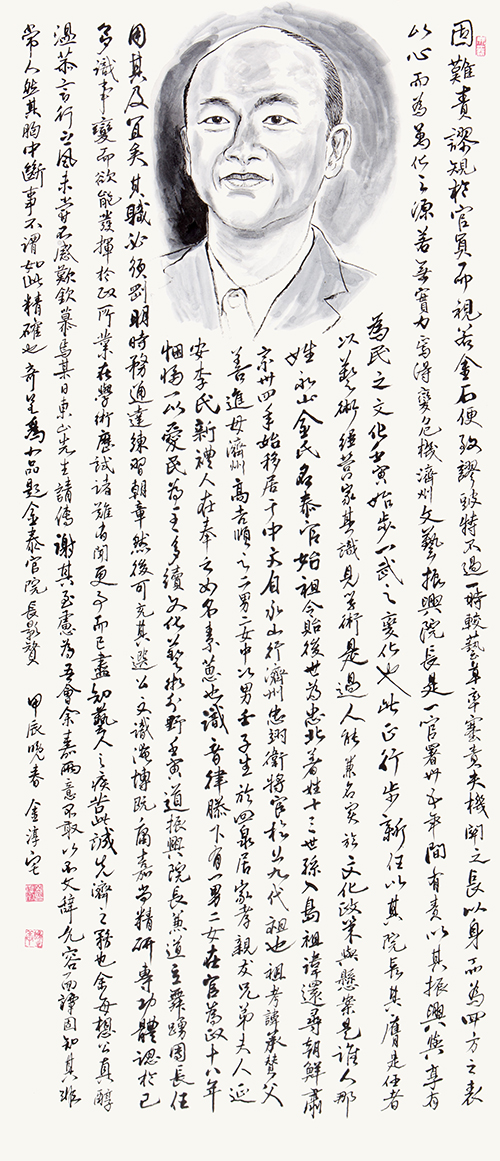 困難責謬規於官員而視若金石便致謬頗特不過一時較藝卑率塞責夫機關之長以身而為四方之表
以心而為萬化之源若無實力焉得變危機濟州文藝振興院長是一官署卅五年間有責以其振興與享有
為民之文化主寅始步一武之變化也此正行步新任以其院長其膺是任者
以藝術經營家其識見學術是過人能兼名實於文化政策與懸案是誰人那
姓永山金氏名泰官始祖令貽後世為忠北著姓十三世孫入島祖諱還尋朝鮮肅
宗卅四年始移居于中文自永山行濟州忠翊衛將官於公九代祖也祖考諱承贊父
善進母濟州高吉順之二男二女中以男壬子生於四泉居家孝親友兄弟夫人延
安李氏新禮人在奉之如名素蕙也識音律膝下有一男二女在官為政十八年
悃愊一以愛民為主多績文化藝術於野壬寅道振興院長兼道立舞踊團長任
用其及宜矣其職必須剴明時務通達練習朝章然後可充其選公文識淹博阮庸嘉尚精研專功體認於己
多識事變而欲能發揮於政所業在學術歷試諸難省聞更事而已盡知藝人之疾苦此誠先濟之務也余每想公真醇
溫恭言行之風未嘗不感歎欽慕焉某日東山先生請傳謝其至憲為吾會余嘉兩意不敢以不文辭允容而譚固知其非
常人然其胸中斷事不謂如此精確也奇呈為小品題金泰官院長影贊
甲辰晚春 金淳宅